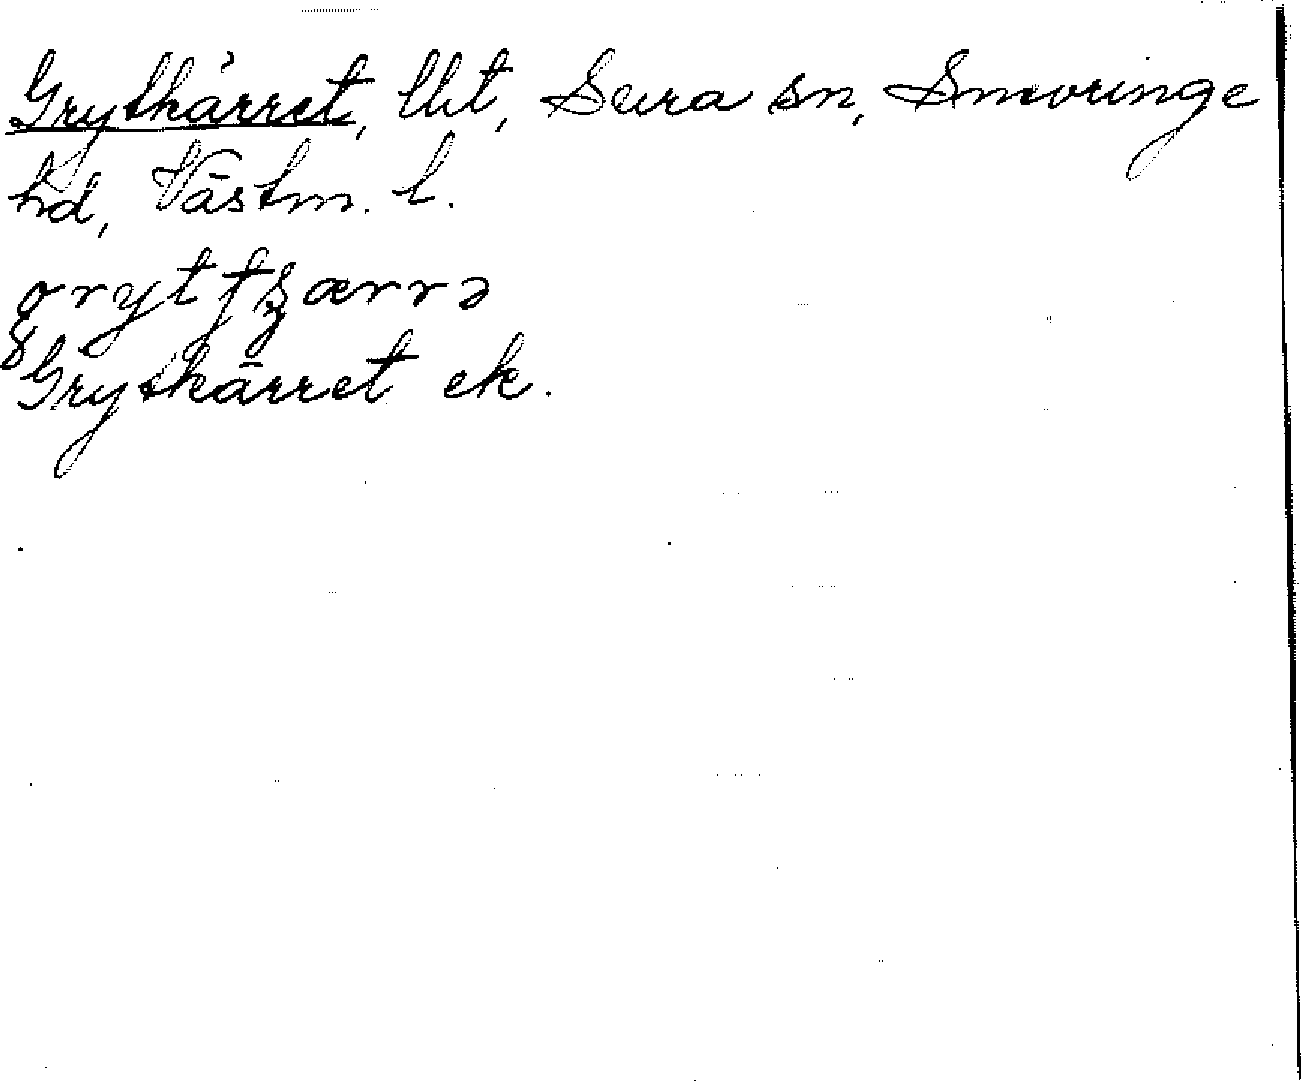 Grytkärret, lht, Sura sn, Snevringe
hd, Västm. l.
gryttʂærrə
Grytkärret ek.